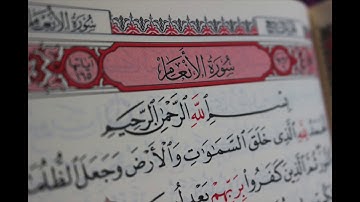 سُورَةُ الأَنْعَامِ
سُورَةُ الأَنْعَامِ
بِسْمِ اللَّهِ الرَّحْمَٰنِ الرَّحِيمِ
لِلَّهِ الَّذِي خَلَقَ السَّمَاوَاتِ وَالْأَرْضَ وَجَعَلَ الظُّلُمَٰتِ
ثُمَّ الَّذِينَ كَفَرُوا بِرَبِّهِمْ